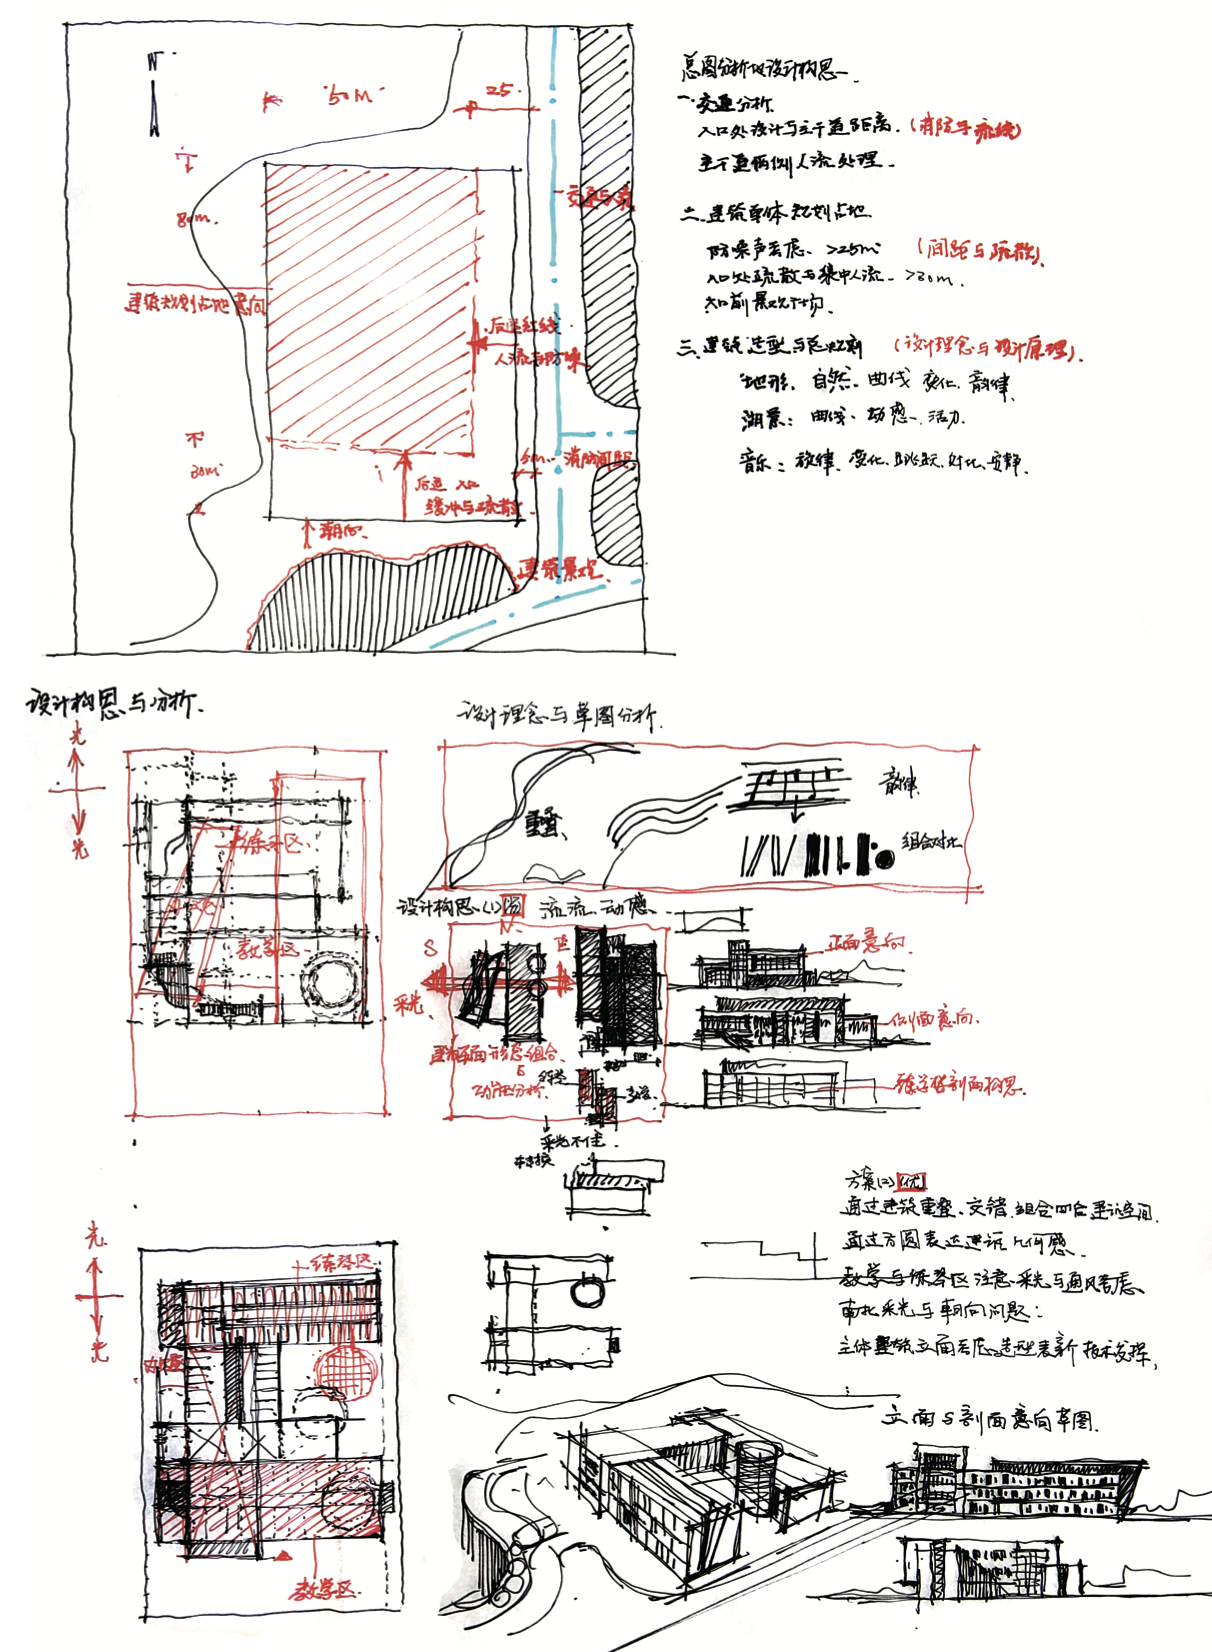 N
50M
25
80m.
30m
建筑规划占地意向
交通与景
后退红线
人流与防噪
5m
消防间距
后退 入口
缓冲与疏散
湖心
建筑景观
总图分析及设计构思一
一.交通分析
入口处设计与主干道距离.(消防与流线)
主干道两侧人流处理.
二.建筑单体规划占地
防噪声考虑. >25m (间距与疏散).
入口处疏散与集中人流. >30m.
入口前景观广场.
三.建筑造型与 (设计理念与设计原理).
地形. 自然. 曲线 变化. 韵律.
湖景: 曲线. 动感. 活力.
音乐: 旋律. 变化. 跳跃. 对比. 安静.
设计构思与分析.
光
光
练习区.
教学区
设计理念与草图分析.
重叠.
韵律.
组合对比
设计构思.(1)
流. 动感.
N
S
E
采光.
平面形态组合.
功能分析.
采光不佳.
正面意向
侧面意向.
剖面构思.
方案(二)(优)
通过建筑重叠、交错.组合 建筑空间.
通过方圆表达建筑几何感.
教学与练习区注意采光与通风考虑.
南北采光与朝向问题:
光
光
练习区
教学区.
立面与剖面意向草图.